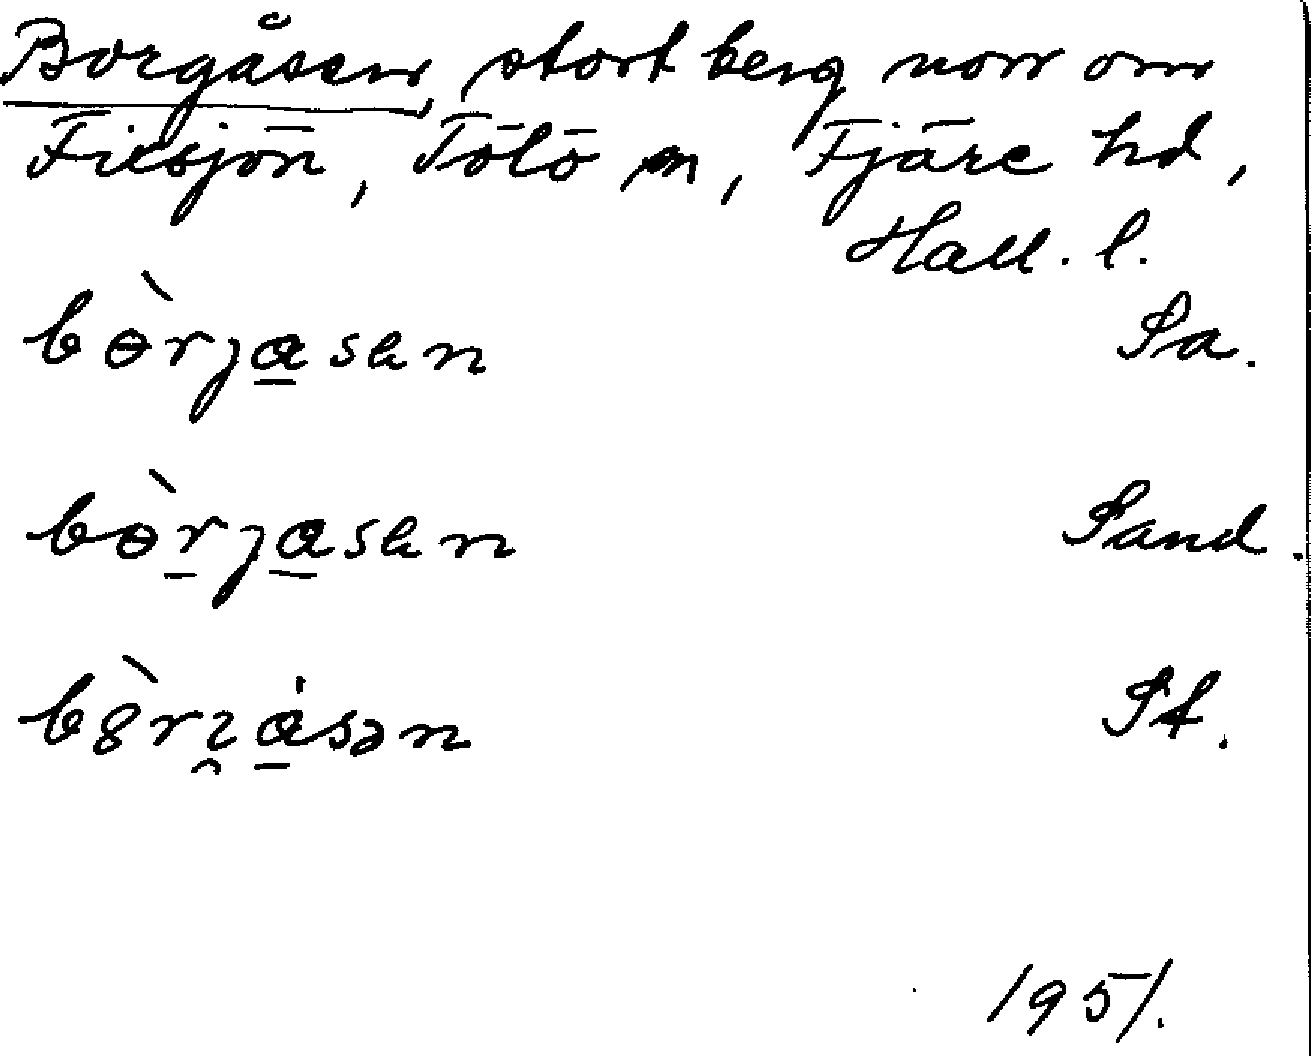 Borgåsen, stort berg norr om
Fjärsjön, Tölö sn, Fjäre hd,
Hall. l.
bɵ̀rja̲sen Sa.
bɵ̀r̲ja̲sen Sand.
bȣ̀rɿ̯a̲̍sən St.
1951.